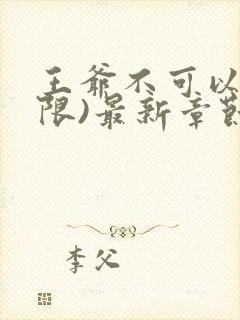 王爷不可以
限)最新章节
李父